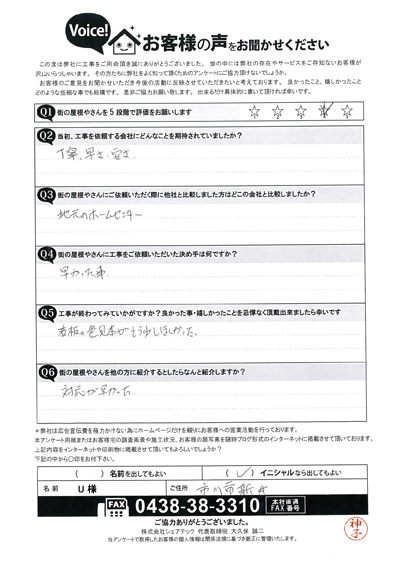 Voice!
お客様の声をお聞かせください
この度は弊社に工事をご用命頂き誠にありがとうございました。世の中には弊社の存在やサービスをご存知ないお客様が
沢山いらっしゃいます。その方たちに弊社をよく知って頂くためのアンケートにご協力頂けないでしょうか。
お客様のご意見をお聞かせいただき今後の活動に反映させていただきたいと考えております。良かったこと、嬉しかったこと
どのような些細な事でも結構です。是非ご協力お願い致します。出来るだけ具体的に書いて頂ければ幸いです。
Q1 街の屋根やさんを5段階で評価をお願いします ☆ ☆ ☆ ☆ ☆
Q2 当初、工事を依頼する会社にどんなことを期待されていましたか?
丁寧、早さ、安さ
Q3 街の屋根やさんにご依頼いただく際に他社と比較しました方はどこの会社と比較しましたか?
地元のホームセンター
Q4 街の屋根やさんに工事をご依頼いただいた決め手は何ですか?
早かった事
Q5 工事が終わってみていかがですか?良かった事・嬉しかったことを忌憚なく頂戴出来ましたら幸いです
看板の色見本がもう少しほしかった。
Q6 街の屋根やさんを他の方に紹介するとしたらなんと紹介しますか?
対応が早かった
*弊社は広告宣伝費を極力かけない為にホームページだけを頼りにお客様への営業活動を行っております。
本アンケート用紙またはお客様宅の調査風景や施工状況、お客様の顔写真を随時ブログ形式のインターネットに掲載させて頂いております。
上記内容をインターネットや印刷物に掲載させて頂いてもよろしいでしょうか?
下記の中から〇印をお付け下さい。
( ) 名前を出してもよい ( ✓ ) イニシャルなら出してもよい
名前 U様 ご住所 市川市新
FAX 0438-38-3310 本社直通 FAX番号
ご協力ありがとうございました。
株式会社シェアテック 代表取締役 大久保 誠二
当アンケートで取得したお客様の個人情報は関係法規に基づき厳正に管理いたします。
神子